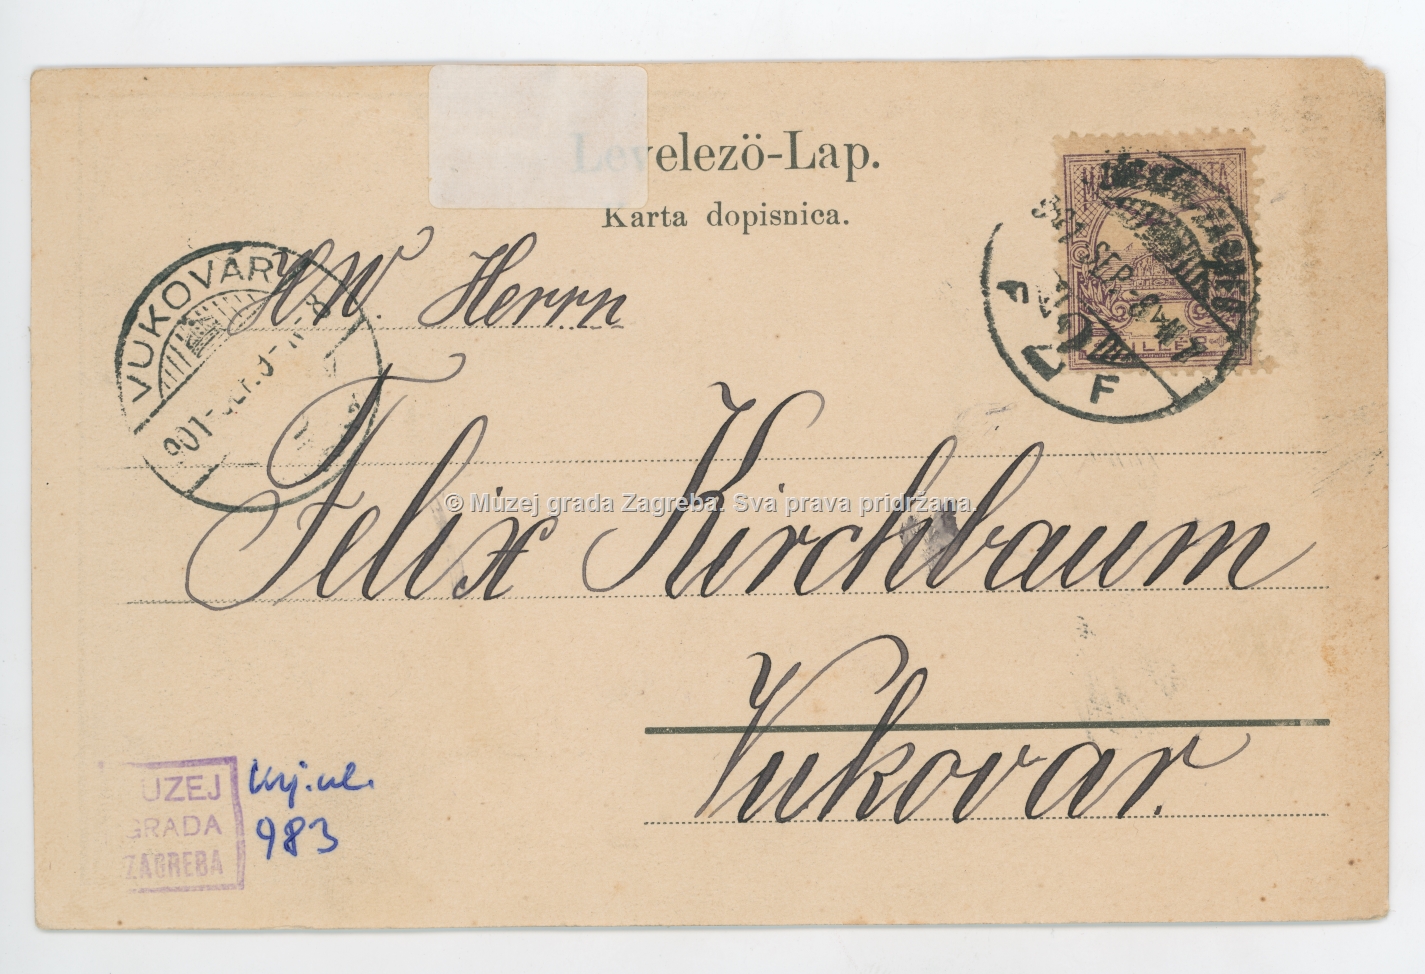 Levelezö-Lap.
Karta dopisnica.
VUKOVÁR
901
SEP.
F
F
H.W. Herrn
Felix Kirchbaum
© Muzej grada Zagreba. Sva prava pridržana.
Vukovar.
MUZEJ
GRADA
ZAGREBA
983